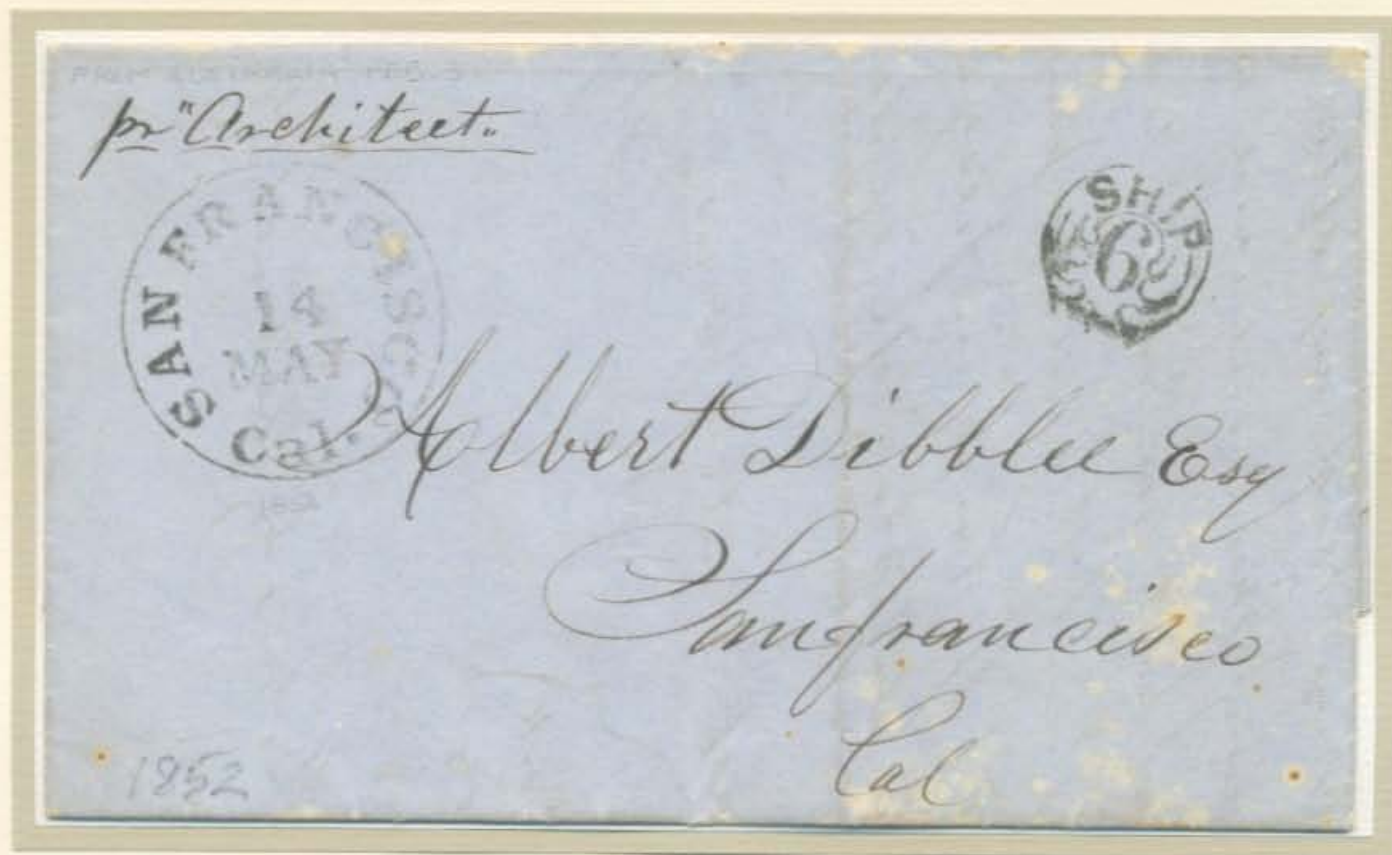 FEB. 3
pr "Architect"
SAN FRANCISCO
14
MAY
Cal.
SHIP
6
1852
Albert Dibblee Esq
Sanfrancisco
Cal
1852